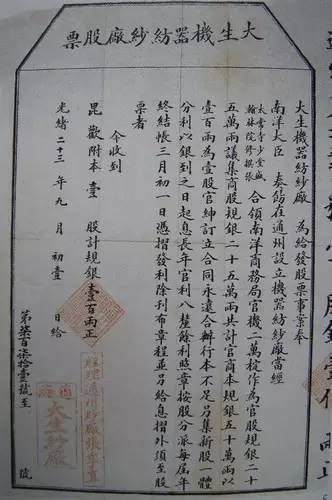 大生機器紡紗廠股票
大生機器紡紗廠 為給發股票事案奉
南洋大臣 奏飭在通州設立機器紡紗廠當經
太常寺少堂盛
翰林院修撰張
合領南洋商務局官機二萬錠作為官股規銀二十
五萬兩議集商股規銀二十五萬兩共計官商本規銀五十萬兩以
壹百兩為壹股官紳訂立合同永遠合辦行本不足另集新股一體
分利以銀到之日起息長年官利八釐餘利照章按股分派每屆年
終結帳三月初一日憑摺發利除刊布章程並另給息摺外須至股
票者
今收到
毘歡附本壹 股計規銀壹百兩正
光緒二十三年九月初壹日給
第柒百柒拾壹號至 號
經理通州紗廠張季直
大生紗廠